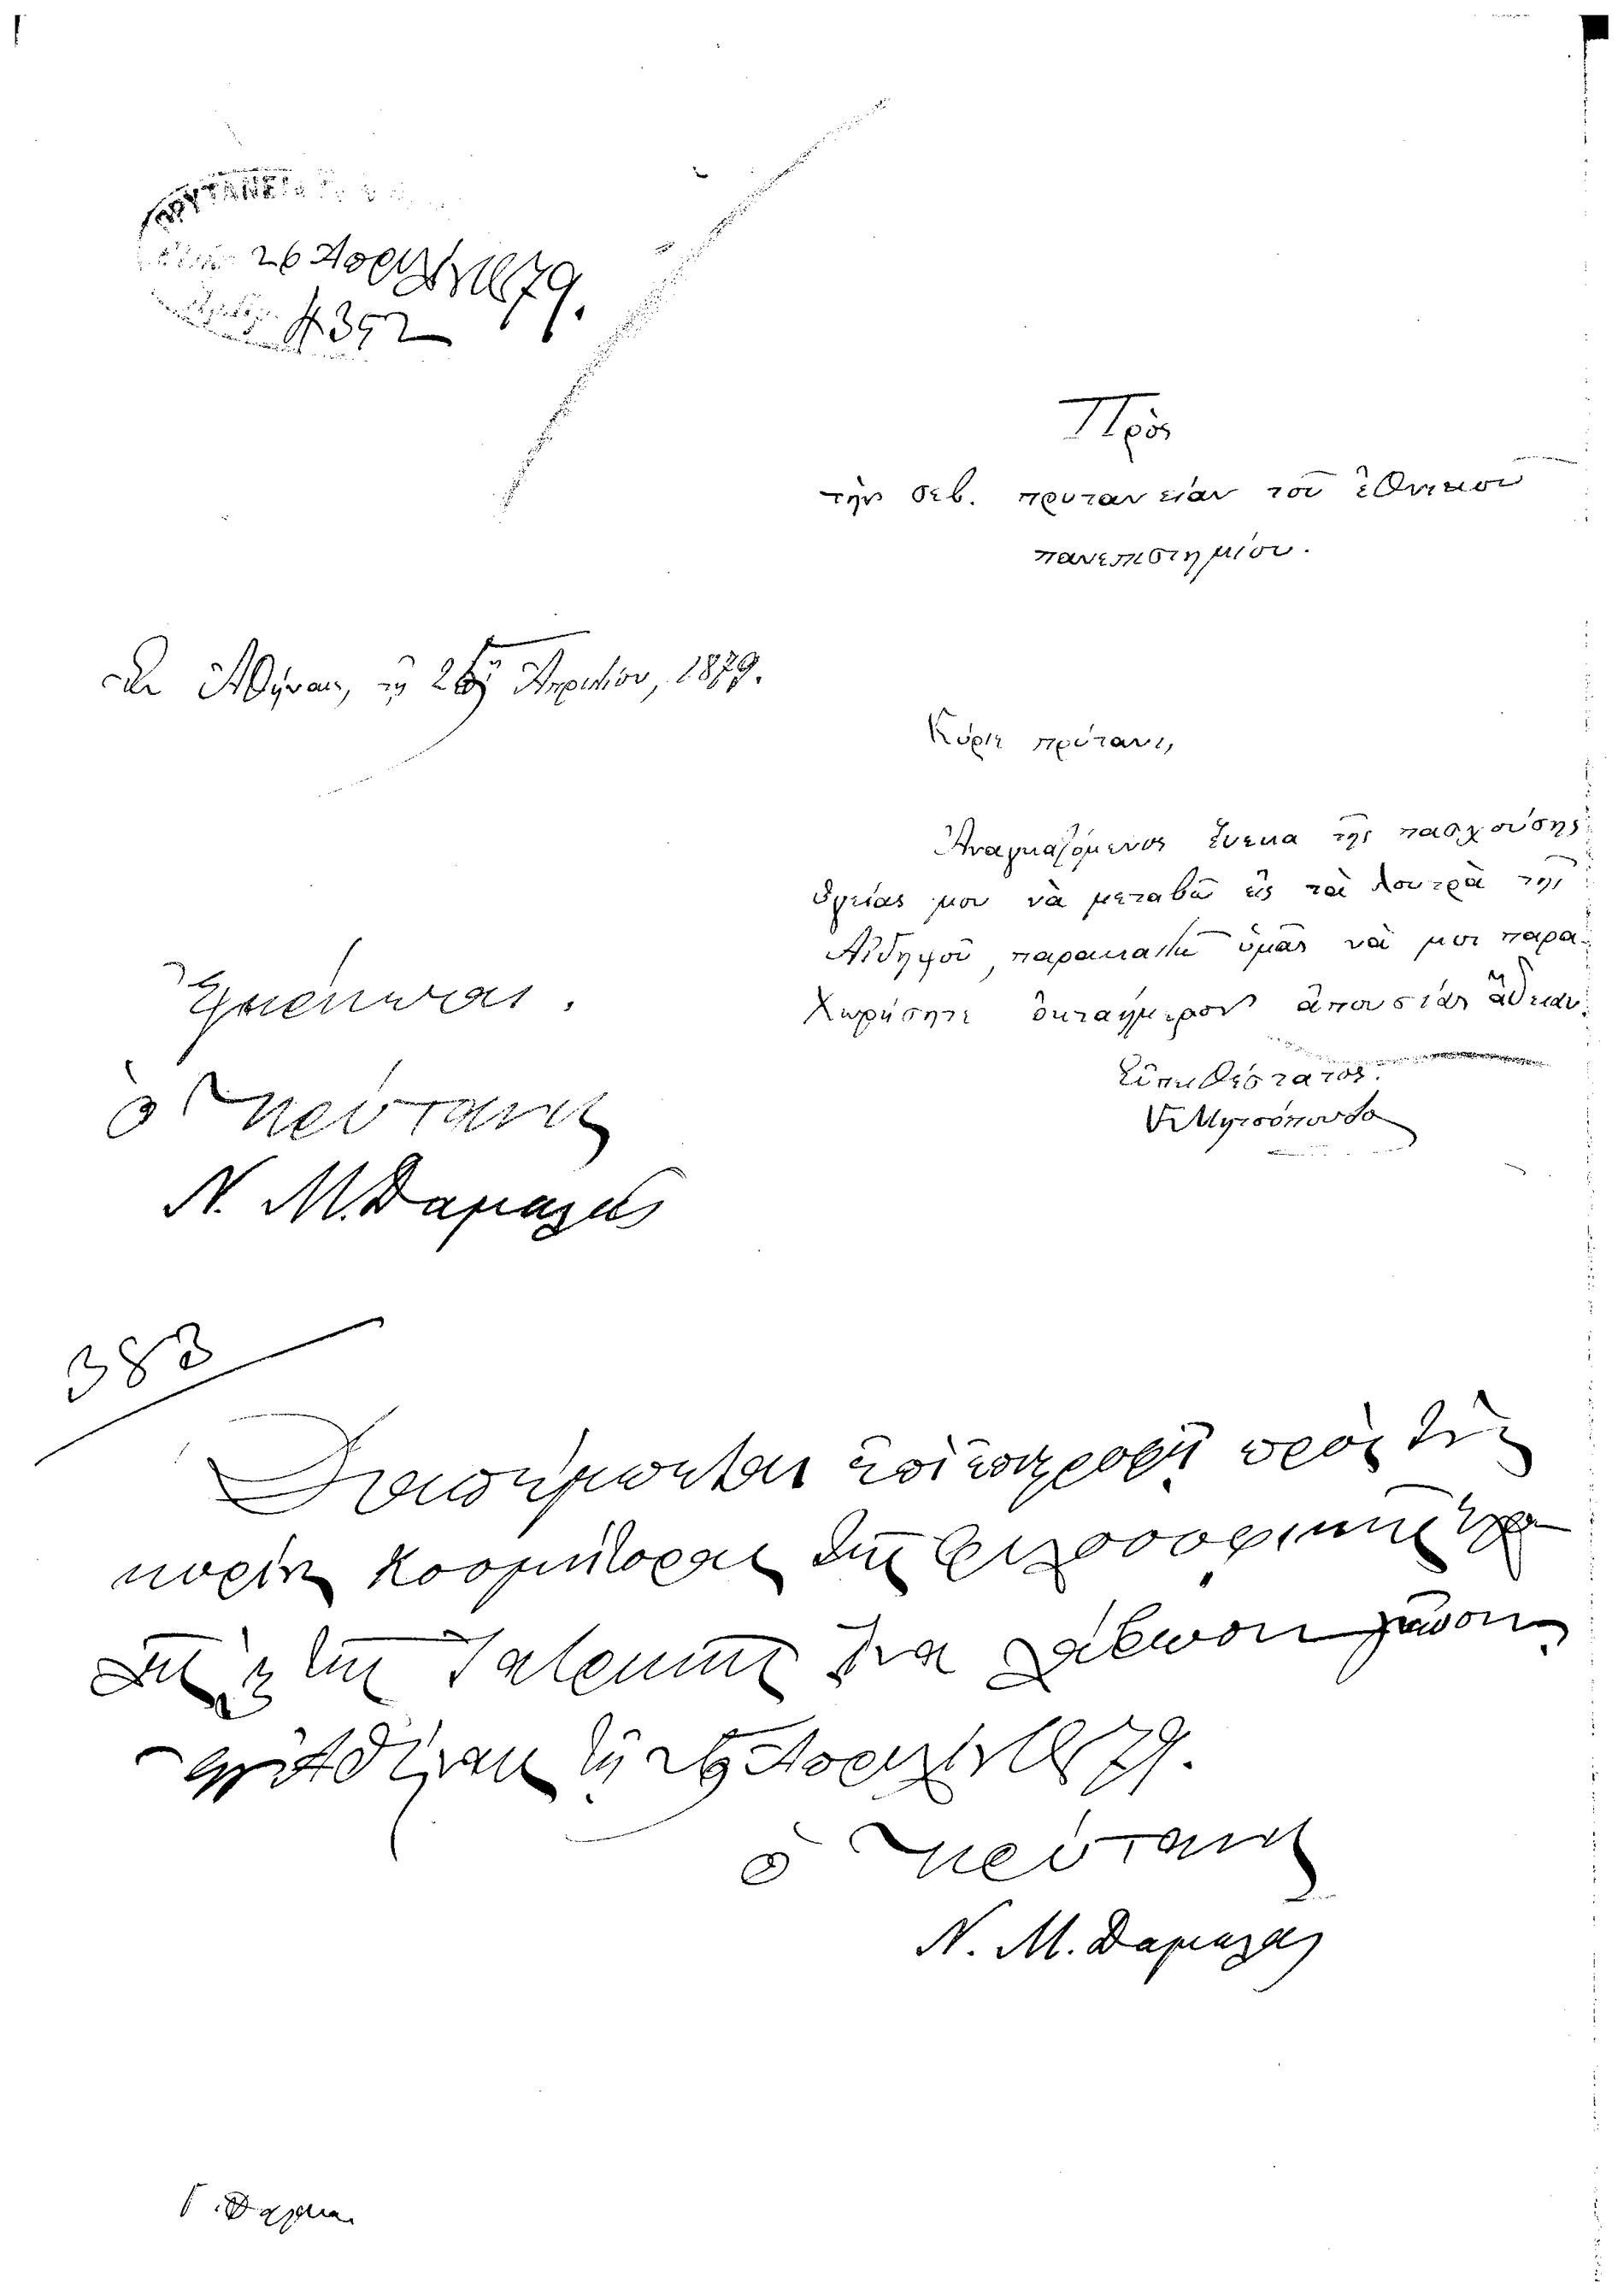 ΠΡΥΤΑΝΕΙΑ
26 Ἀπριλίου 1879.
4392
Πρὸς
τὴν σεβ. πρυτανείαν τοῦ ἐθνικοῦ
πανεπιστημίου.
Ἐν Ἀθήναις, τῇ 26ῃ Ἀπριλίου, 1879.
Κύριε πρύτανι,
Ἀναγκαζόμενος ἕνεκα τῆς πασχούσης
ὑγείας μου νὰ μεταβῶ εἰς τὰ λουτρὰ τῆς
Αἰδηψοῦ, παρακαλῶ ὑμᾶς νὰ μοι παρα-
χωρήσητε ὀκταήμερον ἀπουσίας ἄδειαν.
Εὐπειθέστατος
Κ Μητσόπουλο
Ἐγκρίνεται.
ὁ Πρύτανις
Ν. Μ. Δαμαλᾶς
383
Διαπέμπεται ἐπὶ ἐπιστροφῇ πρὸς τοὺς
κυρίους Κοσμήτορας τῆς Φιλοσοφικῆς Σχο
λῆς, καὶ τῆς Ἰατρικῆς ἵνα λάβωσι γνῶσιν
Ἀθήναις τῇ 26 Ἀπριλίου 1879.
ὁ Πρύτανις
Ν. Μ. Δαμαλᾶς